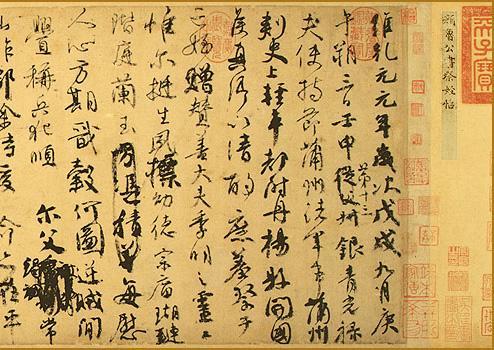 顏魯公書祭姪帖
維乾元元年歲次戊戌九月庚
午朔三日壬申第十三從父叔銀青光祿
夫使持節蒲州諸軍事蒲州
刺史上輕車都尉丹楊縣開國
侯真卿以清酌庶羞祭于
亡姪贈贊善大夫季明之靈
惟爾挺生夙標幼德宗廟瑚璉
階庭蘭玉方憑積善每慰
人心方期戩穀何圖逆賊間
釁稱兵犯順爾父常
山作郡余時受命亦在平